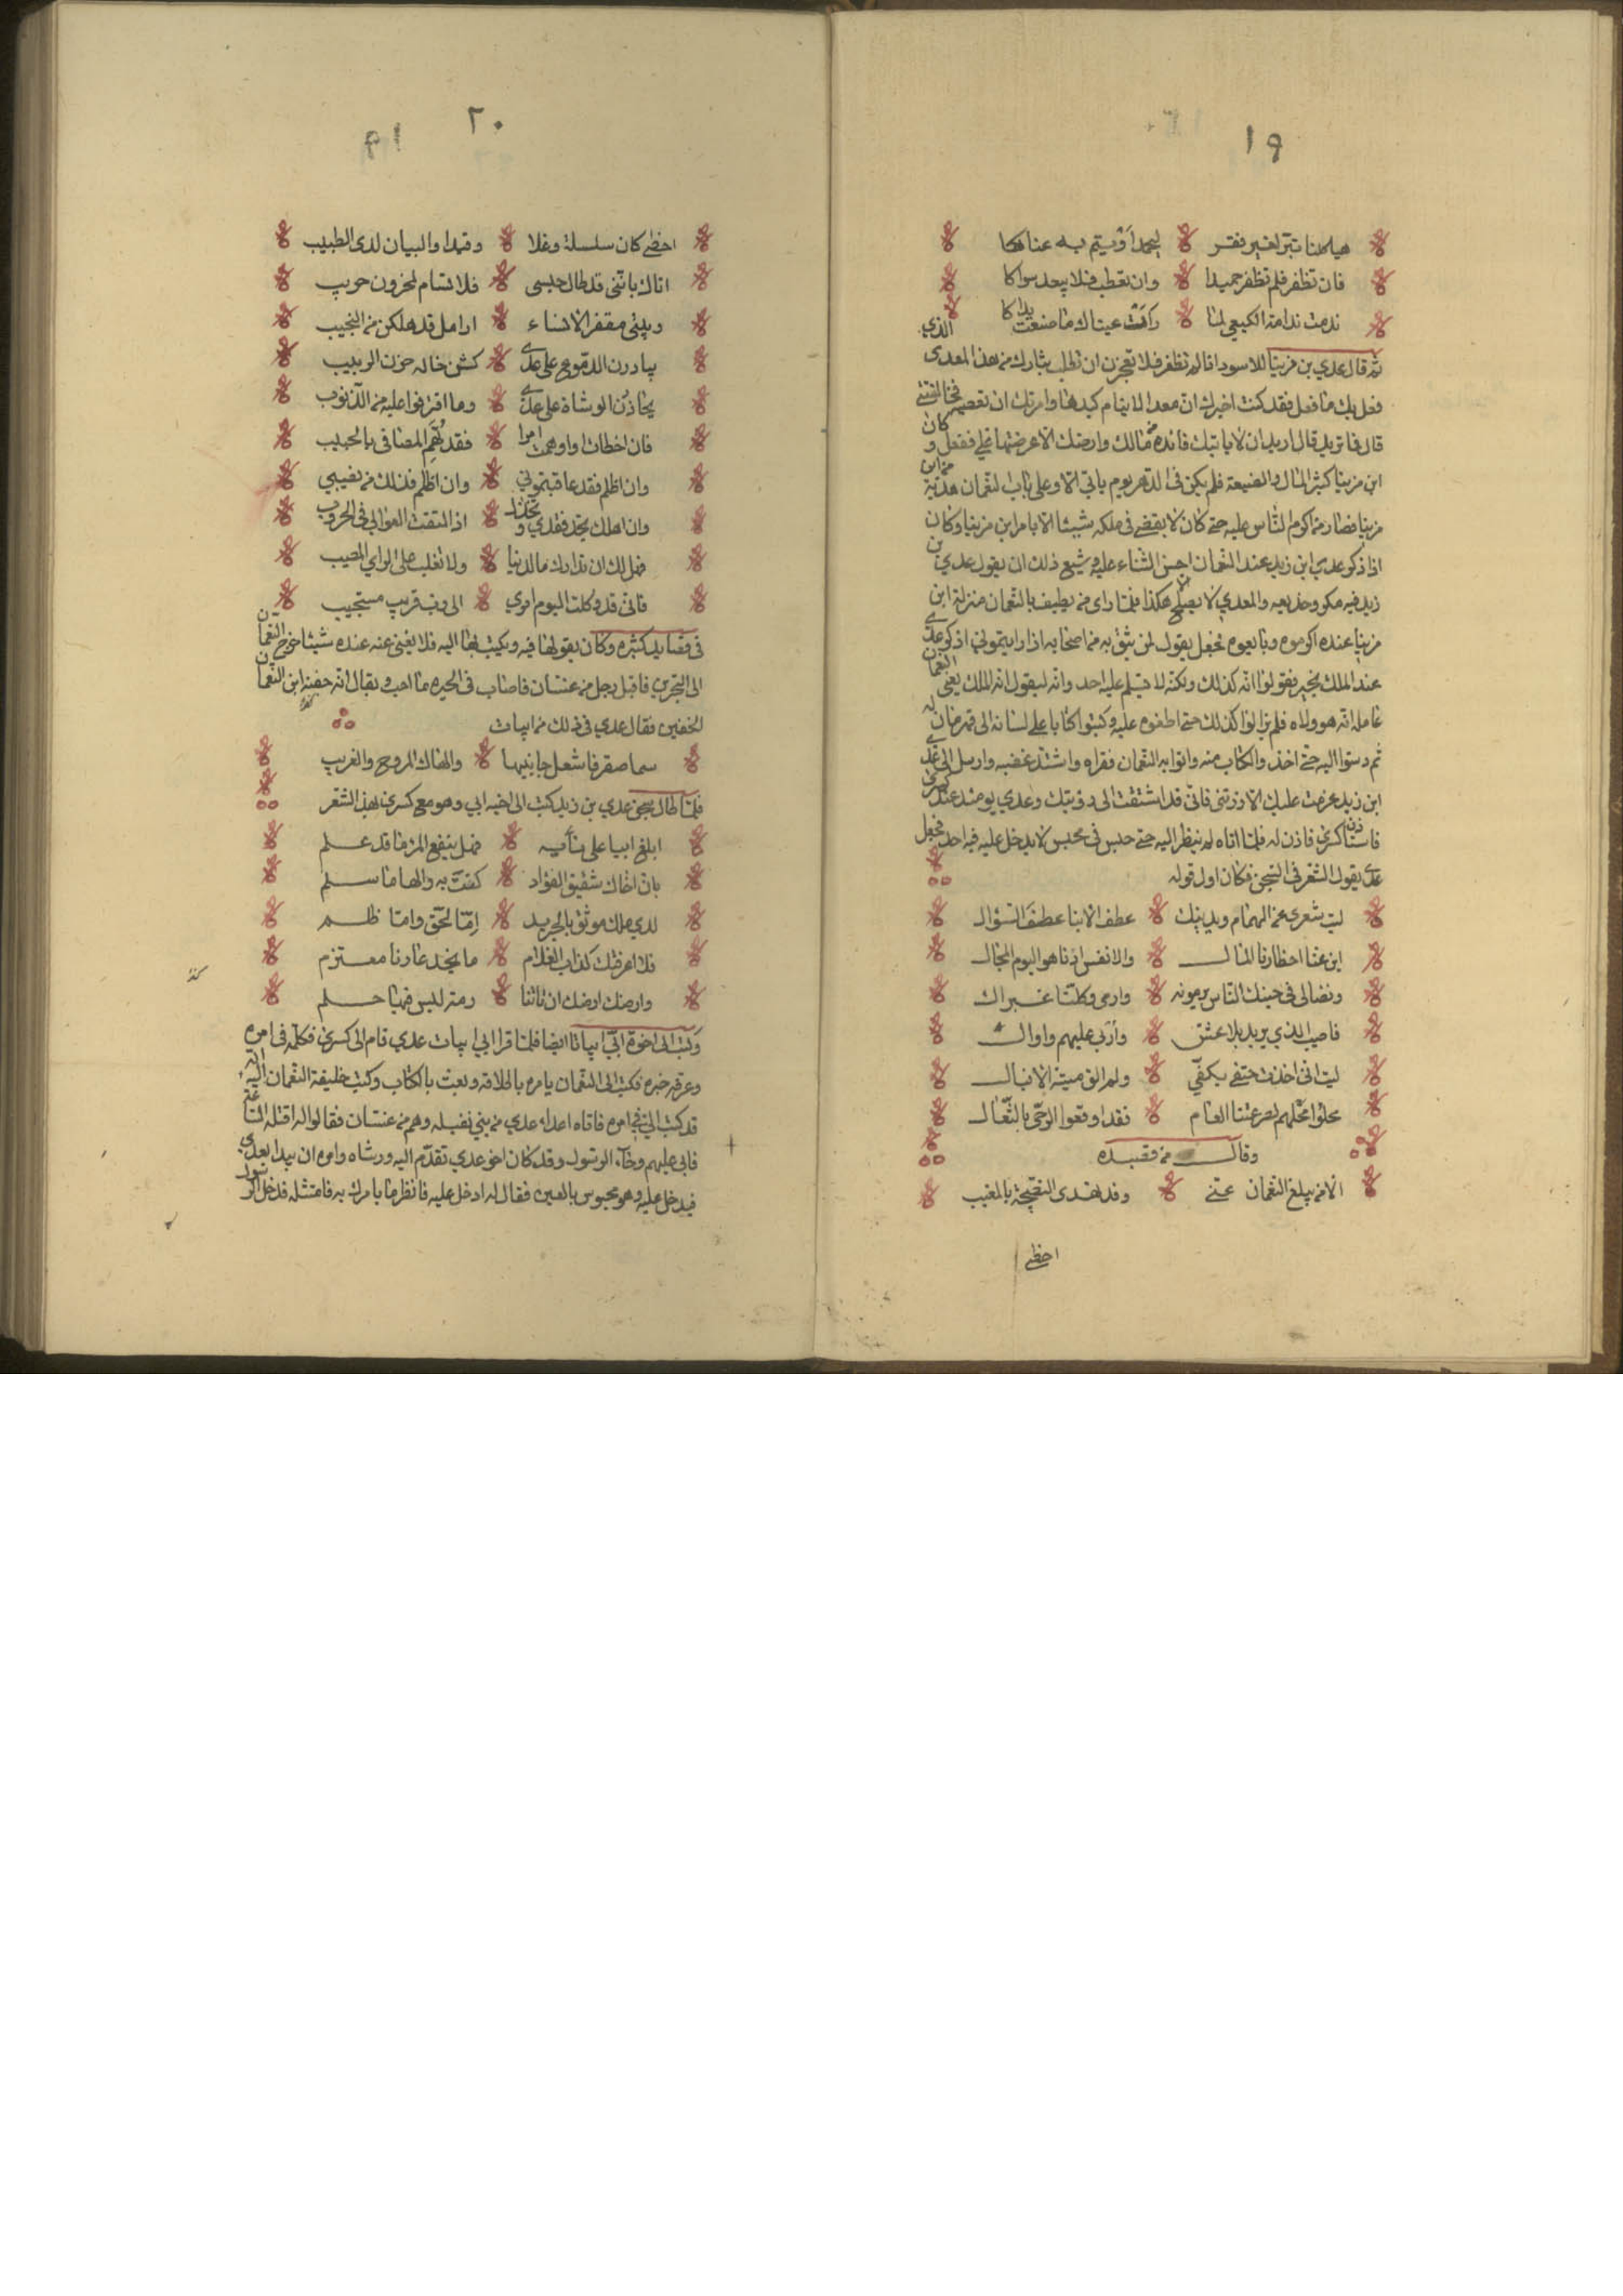 ١٩
هياهمنا تبتر لغير نفر ليحمدا ويتم به عناهكا
فان تظفر فلم تظفر حميدا وان تعطب فلا يبعد سواكا
ندمت ندامة الكسعي لما رأت عيناك ما صنعت يداكا
ثم قال عدي بن مرينا للاسود اذا لم تظفر فلا تعجزن ان تطلب بثارك من هذا المعدى الذي
فعل بك ما فعل فقد كنت اخبرك ان معدا لا ينام كيدها وامرتك ان تعصيه فخالفتني
قال فما تريد قال اريد ان لا ياتيك فائدة من مالك وارضك الا عرضتها علي ففعل وكان
ابن مرينا كثير المال والضيعة فلم يكن في الدهر يوم ياتي الا وعلى باب النعمان هدية من ابن
مرينا فصار من اكرم الناس عليه حتى كان لا يقضي في ملكه شيئا الا بامر ابن مرينا وكان
اذا ذكر عدي ابن زيد عند النعمان احسن الثناء عليه وشيع ذلك ان يقول عدي بن
زيد فيه مكر وخديعه والمعدي لا يصلح الا هكذا فلما راى من يطيف بالنعمان منزلة ابن
مرينا عنده اكرموه وتابعوه فجعل يقول لمن يثق به من اصحابه اذا رايتموني اذكر عدي
عند الملك بخير فقولوا انه كذلك ولكنه لا يسلم عليه احد وانه ليقول ان الملك يعني النعمان
عامله انه هو ولاه فلم يزالوا كذلك حتى اضغنوه عليه وكتبوا كتابا على لسانه الى قهرمان له
ثم دسوا اليه حتى اخذوا الكتاب منه واتوا به النعمان فقراه واشتد غضبه وارسل الى عدي
ابن زيد عزمت عليك الا زرتني فاني قد اشتقت الى رؤيتك وعدي يومئذ عند كسرى
فاستاذن كسرى فاذن له فلما اتاه لم ينظر اليه حتى حبس في محبس لا يدخل عليه فيه احد فجعل
عدي يقول الشعر في السجن فكان اول قوله
ليت شعري عن الهمام ويدينك عطف الانبا عطف السؤال
ابن عنا احظارنا المال والانفس اذ ناهو اليوم المجال
ونضالى في حينك الناس يرمونه وارمي وكلنا غير ال
فاصيب الذي يريد بلا عشق وأربى عليهم واوال
ليت اني اخذت حتفي بكفي ولم الق ميتة الاقبال
محلوا محلهم لصرعتنا العام فقد اوقعوا الرحى بالثفال
وقال من قصيده
الا من يبلغ النعمان عني وقد تهدى النصيحة بالمغيب
احظى
٢٠
١٩
احظى كان سلسلة وغلا وقيدا والبيان لدى الطبيب
اتاك بانني قد طال حبسى فلا تسام لمحزون حريب
وبيتي مقفر الا نساء ارامل قد هلكن من النحيب
يبادرن الدموع على عدي كشن خانه حزن الربيب
يحاذرن الوشاة على عدي وما اقترفوا عليه من الذنوب
فان اخطات او اوهمت امرا فقد تهم المصافى بالحبيب
وان اظلم فقد عاقبتموني وان اظلم فذلك من نصيبي
وان اهلك تجد فقدي وتخذل اذا التقت العوالي في الحروب
فهل لك ان تدارك ما لدينا ولا تغلب على الراي المصيب
فاني قد وكلت اليوم امري الى رب قريب مستجيب
في قصايد كثيره وكان يقولها فيه ويكتب بها اليه فلا يغني عنه عنده شيئا خرج النعمان
الى البحرين فاقبل رجل من غسان فاصاب في الحيره ما احب ويقال انه جفنة ابن النعمان
الجفني فقال عدي في ذلك من ابيات
سما صقر فاشعل جانبيها والهاك المروح والغريب
فلما طال سجن عدي بن زيد كتب الى اخيه ابي وهو مع كسرى بهذا الشعر
ابلغ ابيا على نأيه فهل ينفع المرء ما قد علم
بان اخاك شقيق الفؤاد كنت به والها ما سلم
لدي ملك موثق بالحديد إمّا لحق واما ظلم
فلا اعرفنك كذاب الغلام ما يجد عارما معتزم
وارضك ارضك ان تاتنا رمتر ليس فيها حلم
وكتب الى اخوه ابي ابياتا ايضا فلما قرا ابي ابيات عدي قام الى كسرى فكلمه في امره
وعرفه خبره فكتب الى النعمان يامره باطلاقه وبعث بالكتاب وكتب خليفة النعمان اليه انه
قد كتب اليك في امره فاتاه اعداء عدي من بني نفيله وهم من غسان فقالوا له اقتله الساعة
فابى عليهم وجاء الرسول وقد كان اخو عدي تقدم اليه ورشاه وامره ان يبدا بعدي
فيدخل عليه وهو محبوس بالصين فقال له ادخل عليه فانظر ما يامرك به فامتثله فدخل الرسول